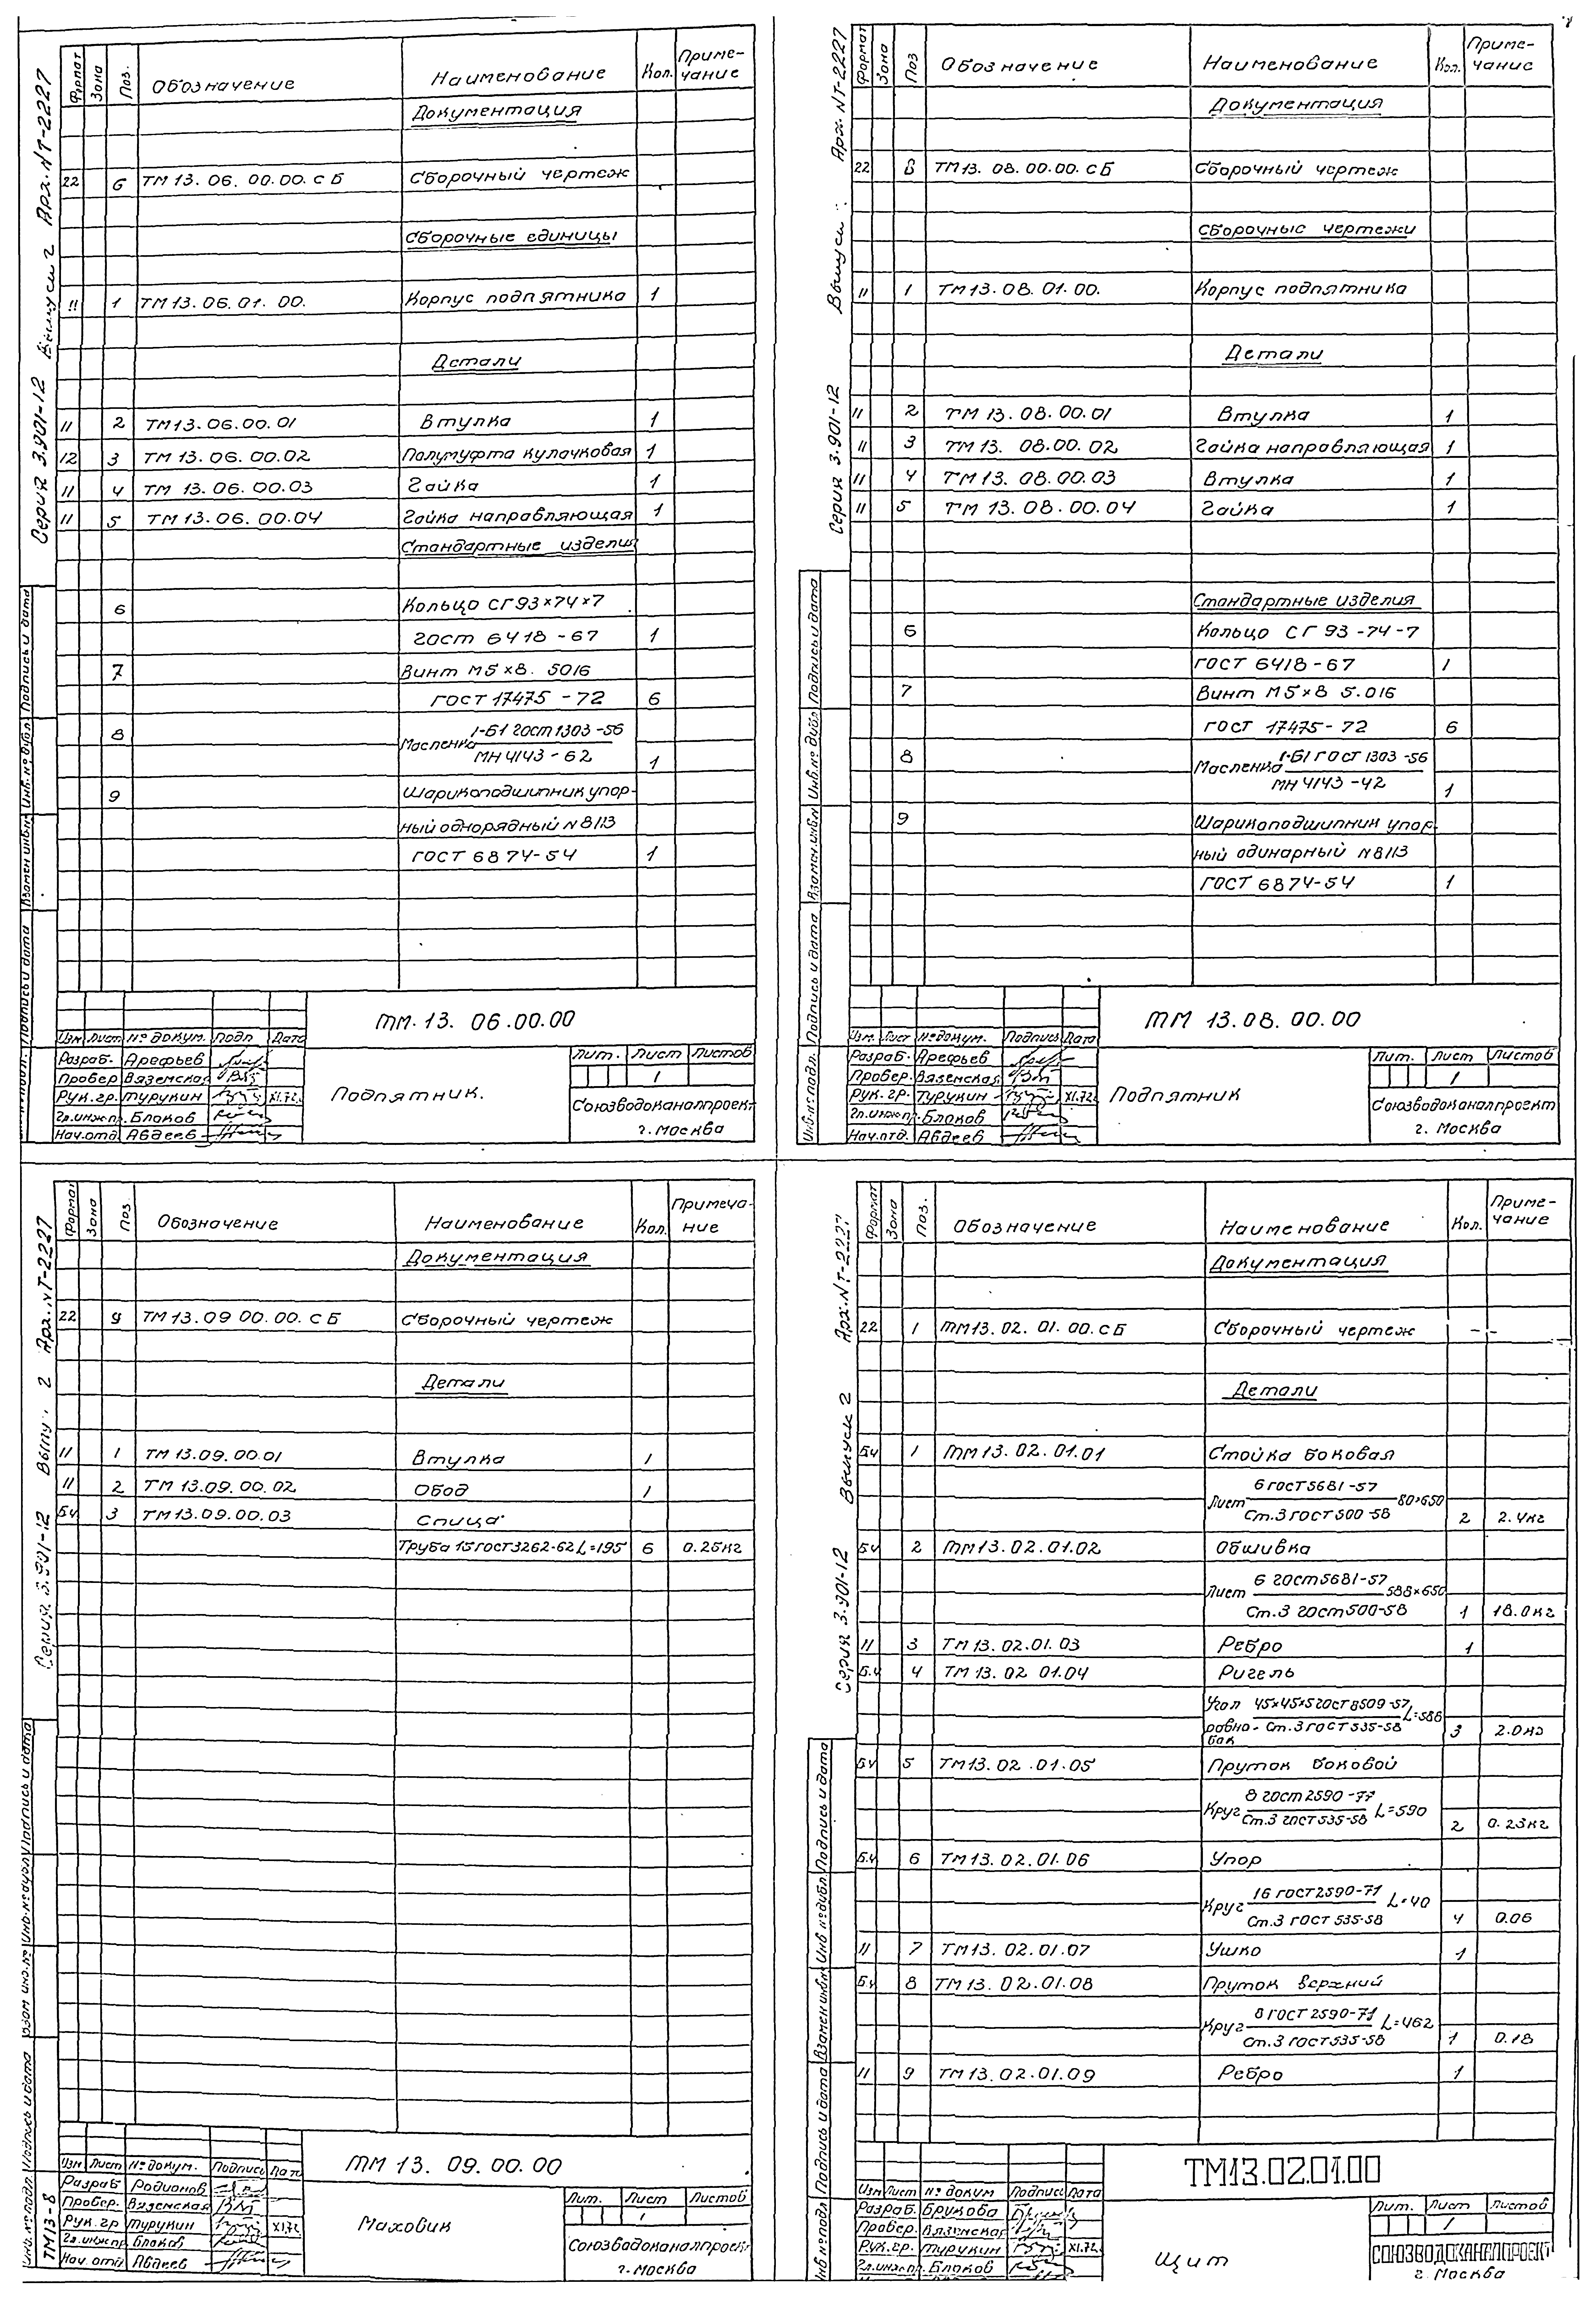 Серия 3.901-12 Выпуск 2 Арх. NТ-2227
Формат Зона Поз. Обозначение Наименование Кол. Приме-
чание
Документация
22 6 ТМ 13. 06. 00.00. СБ Сборочный чертеж
Сборочные единицы
11 1 ТМ 13. 06. 01. 00. Корпус подпятника 1
Детали
11 2 ТМ13. 06.00.01 Втулка 1
12 3 ТМ 13. 06. 00.02 Полумуфта кулачковая 1
11 4 ТМ 13. 06. 00.03 Гайка 1
11 5 ТМ 13. 06. 00.04 Гайка направляющая 1
Стандартные изделия
6 Кольцо СГ93×74×7
ГОСТ 6418-67 1
7 Винт М5×8. 5016
ГОСТ 17475-72 6
8 Масленка 1-Б1 ГОСТ 1303-56
МН 4143-62 1
9 Шарикоподшипник упор-
ный однорядный N 8113
ГОСТ 6874-54 1
Подпись и дата
Инв. № дубл.
Взамен инв.№
Подпись и дата
Изм Лист № докум. Подп Дата
ТМ. 13. 06.00.00
Разраб. Арефьев
Провер Вяземская
Рук. гр. Турукин XI.72
Гл.инж.пр. Блоков
Нач.отд. Авдеев
Подпятник.
Лит. Лист Листов
1
Союзводоканалпроект
г. Москва
Серия 3.901-12 Арх. NТ-2227
Формат Зона Поз Обозначение Наименование Кол. Приме-
чание
Документация
22 8 ТМ13. 08. 00.00. СБ Сборочный чертеж
Сборочные чертежи
11 1 ТМ 13. 08. 01. 00. Корпус подпятника
Детали
11 2 ТМ 13. 08. 00.01 Втулка 1
11 3 ТМ 13. 08.00.02 Гайка направляющая 1
11 4 ТМ 13. 08. 00.03 Втулка 1
11 5 ТМ 13. 08. 00.04 Гайка 1
Стандартные изделия
6 Кольцо СГ 93-74-7
ГОСТ 6418-67 1
7 Винт М5×8 5.016
ГОСТ 17475-72 6
8 Масленка 1-Б1 ГОСТ 1303-56
МН 4143-42 1
9 Шарикоподшипник упор-
ный одинарный N 8113
ГОСТ 6874-54 1
Подпись и дата
Инв. № дубл
Взамен.инв.№
Подпись и дата
Инв.№ подл.
Изм. Лист № докум. Подпись Дата
ТМ 13.08.00.00
Разраб. Арефьев
Провер. Вяземская
Рук. гр. Турукин XI.72.
Гл.инж.пр. Блоков
Нач.отд. Авдеев
Подпятник
Лит. Лист Листов
1
Союзводоканалпроект
г. Москва
Серия 3.901-12 2 Арх. NТ-2227
Формат Зона Поз. Обозначение Наименование Кол. Примеча-
ние
Документация
22 9 ТМ 13.09 00.00. СБ Сборочный чертеж
Детали
11 1 ТМ 13.09.00.01 Втулка 1
11 2 ТМ 13.09.00.02 Обод 1
БЧ 3 ТМ13.09.00.03 Спица
Труба 15 ГОСТ3262-62 L=195 6 0.25кг
Подпись и дата
Инв.№ дубл
Взам инв.№
Подпись и дата
Инв.№ подл.
ТМ13-8
Изм Лист № докум. Подпись Дата
ТМ 13. 09.00.00
Разраб Родионов
Провер. Вяземская
Рук. гр Турукин XI.72
Гл.инж.пр. Блоков
Нач. отд Авдеев
Маховик
Лит. Лист Листов
1
Союзводоканалпроект
г. Москва
Серия 3.901-12 Выпуск 2 Арх. NТ-2227
Формат Зона Поз. Обозначение Наименование Кол. Приме-
чание
Документация
22 1 ТМ13. 02. 01. 00. СБ Сборочный чертеж
Детали
БЧ 1 ТМ13. 02. 01.01 Стойка боковая
Лист 6 ГОСТ5681-57 80×650
Ст.3 ГОСТ 500-58 2 2.4кг
БЧ 2 ТМ13. 02. 01.02 Обшивка
Лист 6 ГОСТ5681-57 588×650
Ст.3 ГОСТ500-58 1 18.0кг
11 3 ТМ 13. 02.01. 03 Ребро 1
Б.Ч 4 ТМ 13. 02 01.04 Ригель
Угол 45×45×5 ГОСТ 8509-57 L=588
равно- Ст.3 ГОСТ 535-58 3 2.0кг
бок
БЧ 5 ТМ13. 02 .01.05 Пруток боковой
Круг 8 ГОСТ 2590-71 L=590
Ст.3 ГОСТ535-58 2 0.23кг
Б.Ч 6 ТМ13. 02.01.06 Упор
Круг 16 ГОСТ2590-71 L=40
Ст.3 ГОСТ 535-58 4 0.06
11 7 ТМ13. 02.01.07 Ушко 1
БЧ 8 ТМ13. 02.01.08 Пруток верхний
Круг 8 ГОСТ 2590-71 L=462
Ст.3 ГОСТ535-58 1 0.18
11 9 ТМ 13. 02.01.09 Ребро 1
Подпись и дата
Инв № дубл.
Взамен инв№
Подпись и дата
Инв № подл
Изм Лист № докум Подпись Дата
ТМ13.02.01.00
Разраб. Брикова
Провер. Вяземская
Рук. гр. Турукин XI.72.
Гл.инж.пр. Блоков
Щит
Лит. Лист Листов
1
СОЮЗВОДОКАНАЛПРОЕКТ
г. Москва